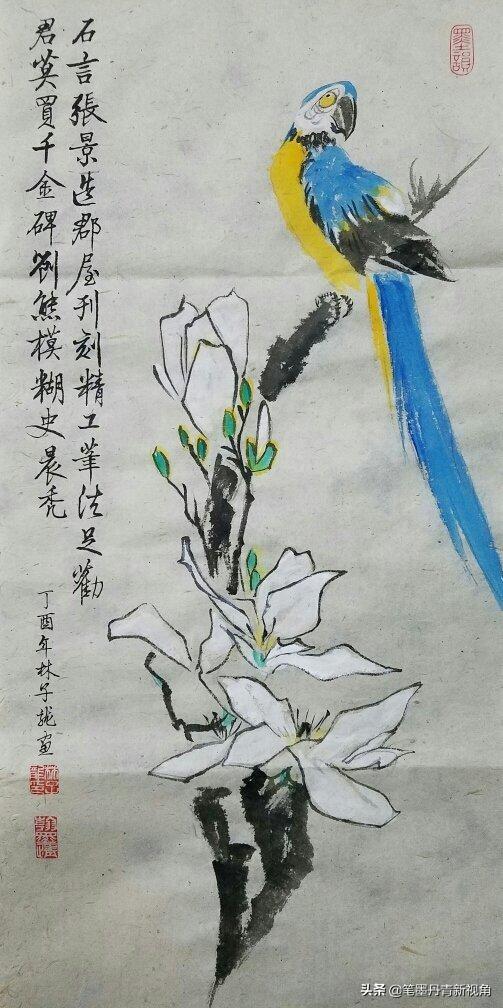 石言張景造郡屋刊刻精工筆法足勸
君莫買千金碑劉熊模糊史晨禿
丁酉年林子龍画
墨韻
头条@笔墨丹青新视角